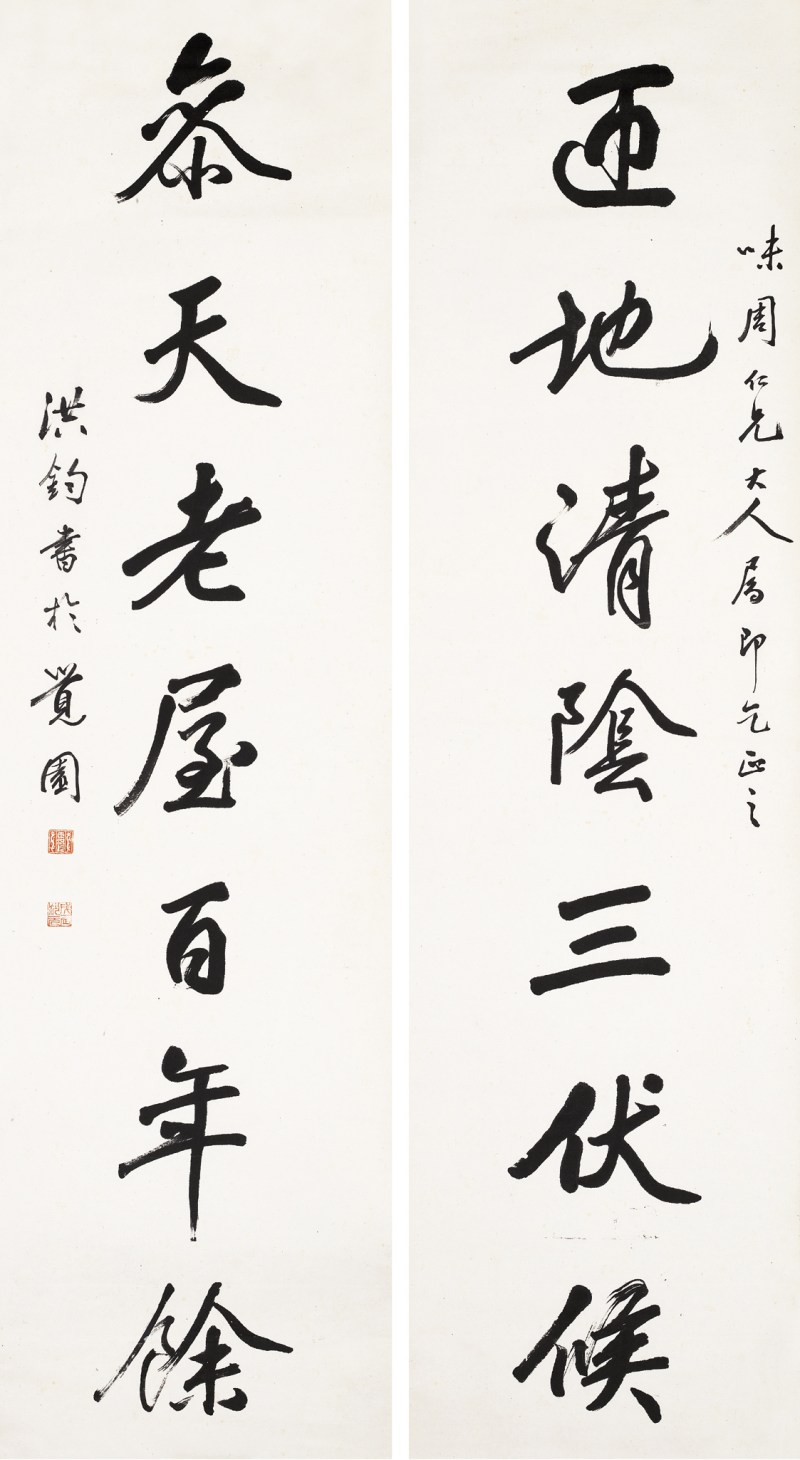 味周仁兄大人属即乞正之
匝地清陰三伏候
叅天老屋百年餘
洪鈞書於覺園